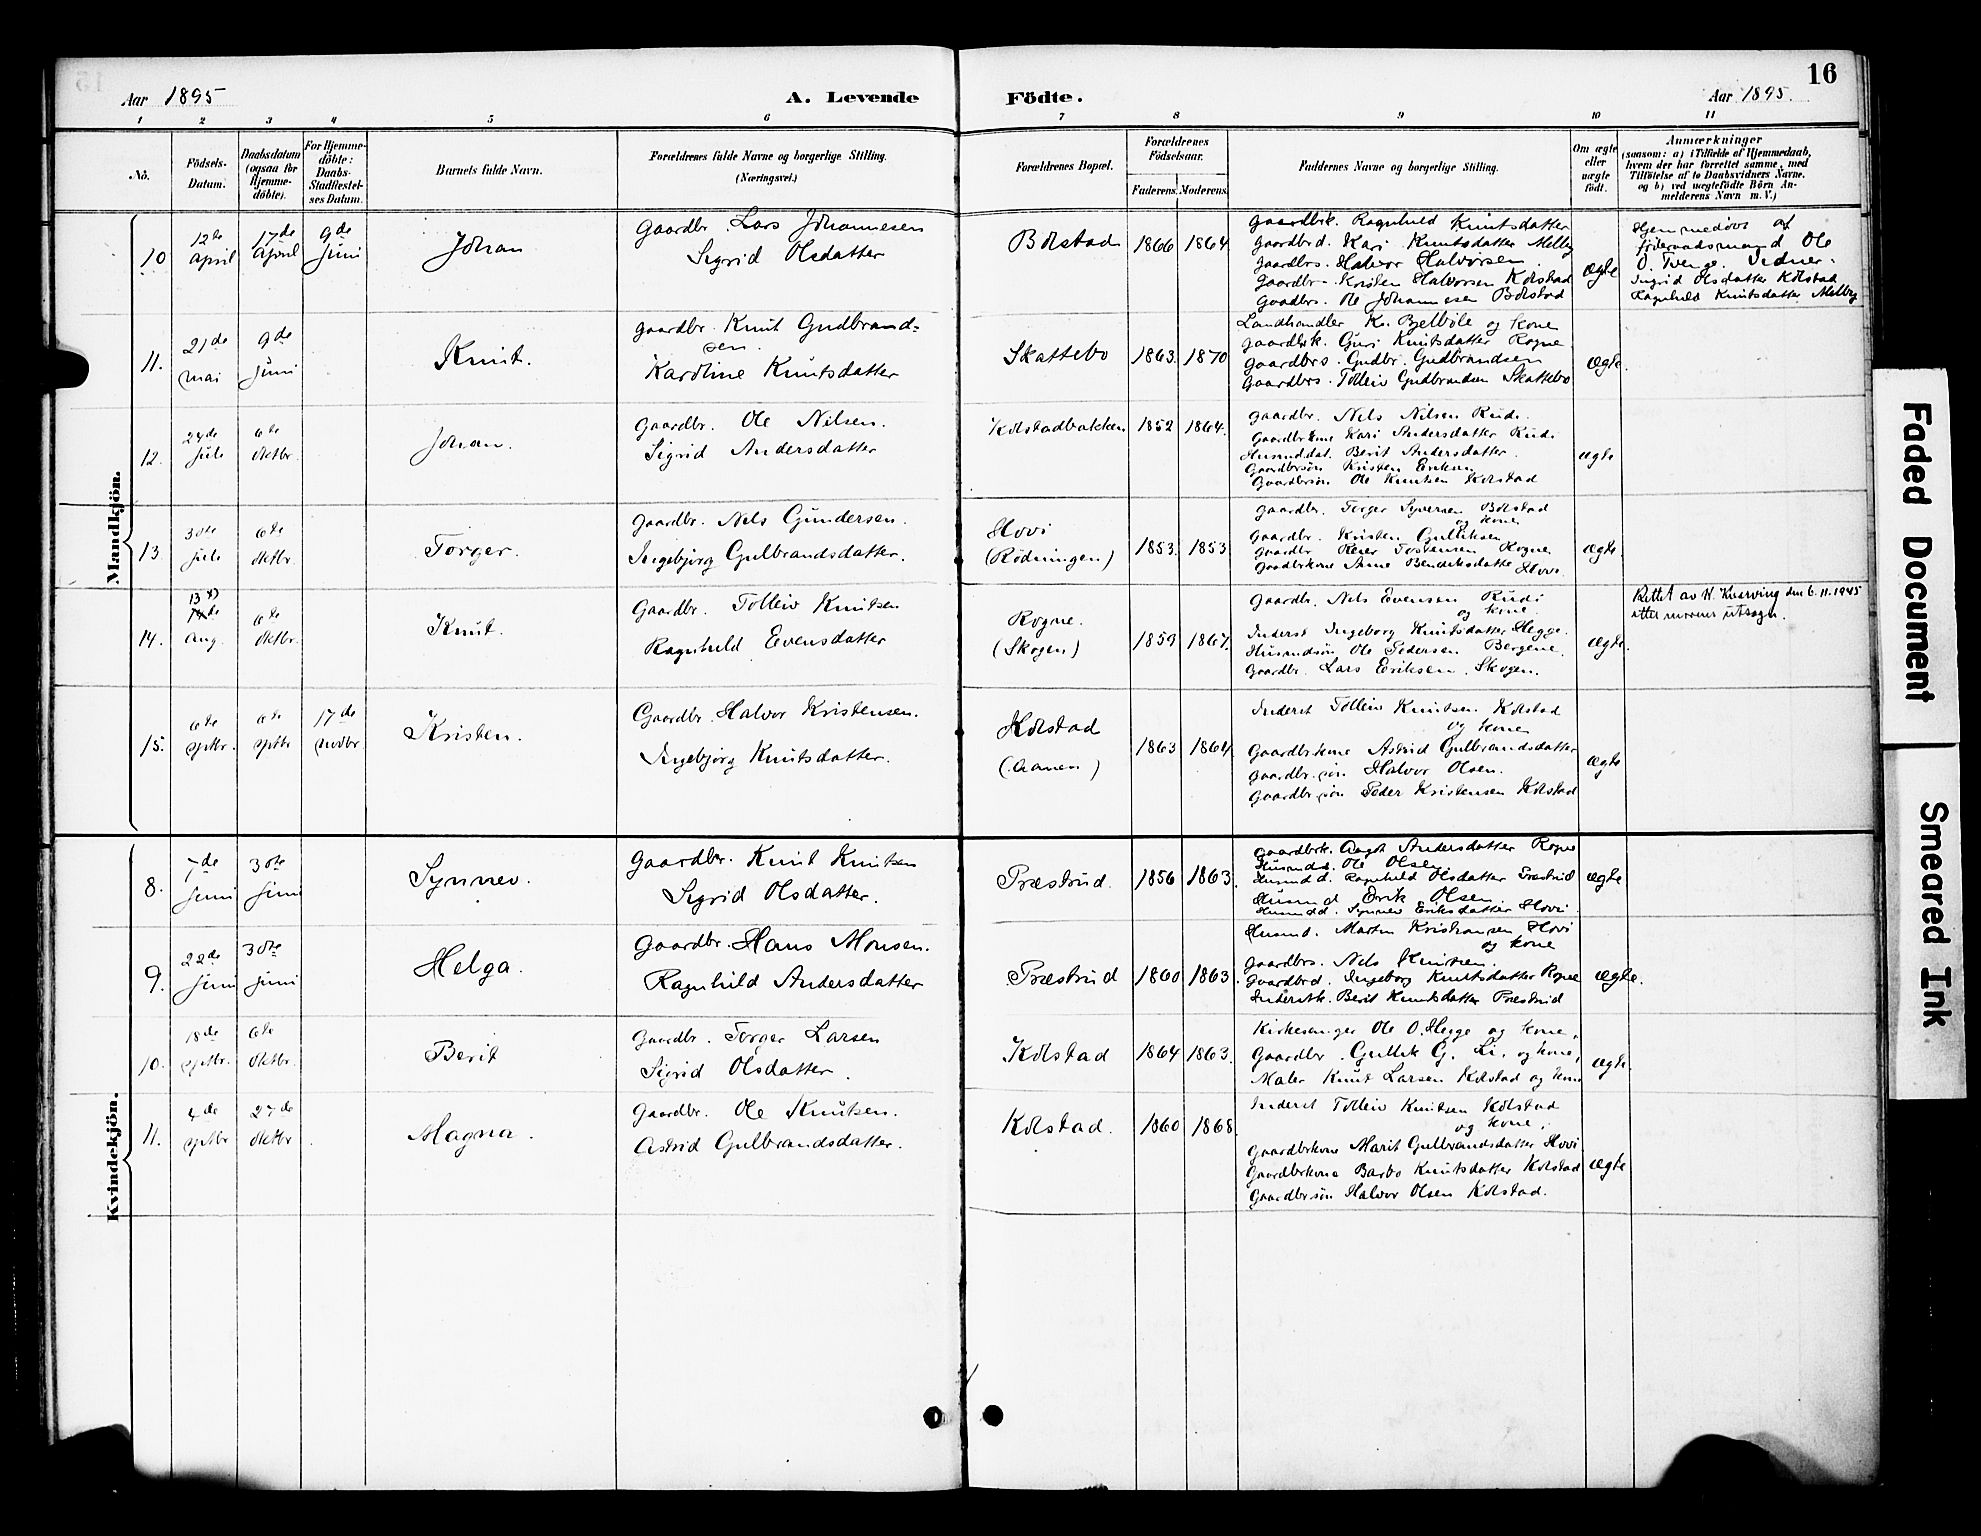 16
Aar 1895
A. Levende
Födte.
Aar 1895.
1 2 3 4 5 6 7 8 9 10 11
No.
Födsels-
Datum.
Daabsdatum
(ogsaa for
Hjemme-
döbte).
For Hjemme-
döbte:
Daabs-
Stadfæstel-
ses Datum.
Barnets fulde Navn.
Forældrenes fulde Navne og borgerlige Stilling.
(Næringsvei.)
Forældrenes Bopæl.
Forældrenes
Födselsaar.
Faderens. Moderens.
Faddernes Navne og borgerlige Stilling.
Om ægte
eller
uægte
födt.
Anmærkninger
(saasom: a) i Tilfælde af Hjemmedaab,
hvem der har forrettet samme, med
Tilföielse af to Daabsvidners Navne.
og b) ved uægtefödte Börn An-
melderens Navn m. V.)
Mandkjön.
10
12te April
17de April
9de Juni
Johan
Gaardbr. Lars Johannesen
Sigrid Olsdatter
Bolstad
1866 1864
Gaardbrk. Ragnhild Knutsdatter
Gaardbrd. Kari Knutsdatter Melby
Gaardbrs. Halvor Halvorsen
Gaardbr. Kristen Halvorsen Kolstad
Gaadbrs. Ole Johannesen Bolstad
Ægte
Hjemmedövt af
föderaadsmand Ole
O. Tvenge. Vidner.
Ingrid Olsdatter Kolstad
Ragnhild Knutsdatter Melby
11.
21de mai
9de Juni
Knut.
Gaardbr. Knut Gudbrand-
sen
Karoline Knutsdatter
Skattebo
1863 1870
Landhandler K. Bjelböle og kone
Gaardbrk. Guri Knutsdatter Rogne
Gaardbrs. Gudbr. Gudbrandsen
Gaardbrs. Tolleiv Gudbrandsen Skattebo
Ægte.
12.
24de Juli
6te Oktbr.
Johan.
Gaardbr. Ole Nilsen.
Sigrid Andersdatter
Kolstadbakken
1852 1864.
Gaardbr. Nils Nilsen Rudi.
Gaardbrkone Kari Andersdatter Rudi
Husmd.dat. Berit Andersdatter.
Gaardbrsön Kristen Eriksen
Gaardbrsön Ole Knutsen Kolstad
Ægte
13
30te Juli
6te Oktbr.
Torger.
Gaardbr. Nils Gundersen.
Ingebjörg Gulbrandsdatter.
Hovi
(Rödningen)
1853. 1853
Gaardbr. Torger Syversen Bolstad
og kone
Gaardbr. Kristen Gulliksen
Gaardbr Reier Tostensen Rogne
Gaardbrkone Anne Bendiksdatter Hovi.
Ægte
14.
13
14de Aug.
6te Oktbr.
Knut.
Gaardbr. Tolleiv Knutsen
Ragnhild Evensdatter
Rogne.
(Skogen)
1859 1867.
Gaardbr. Nils Evensen Rudi
og kone.
Inderst Ingeborg Knutsdatter Hegge.
Husmandsön Ole Pedersen Bergene.
Gaardbr. Lars Eriksen. Skogen.
Ægte.
Rettet av K. Kverving den 6.11.1945
etter morens utsagn.
15.
6te Sptbr.
6te Sptbr
17de Novbr.
Kristen.
Gaardbr. Halvor Kristensen.
Ingebjörg Knutsdatter.
Kolstad
(Aanen)
1863 1864
Inderst Tolleiv Knutsen Kolstad
og kone
Gaardbrkone Astrid Gulbrandsdatter
Gaardbr.sön Halvor Olsen.
Gaardbr.sön Peder Kristensen Kolstad
Ægte
Kvindekjön.
8.
7de Juni
30te Juni
Synnev.
Gaardbr. Knut Knutsen
Sigrid Olsdatter.
Præstrud.
1856 1863.
Gaardbrk. Aagot Andersdatter Rogne
Husmds. Ole Olsen
Husmdd. Ragnhild Olsdatter Præstrud
Husmd Erik Olsen
Husmdd. Synnev Eriksdatter Hovi.
Ægte
9.
22de Juni
30te Juni
Helga.
Gaardbr. Hans Monsen.
Ragnhild Andersdatter
Præstrud
1860 1863.
Husmd. Martin Kristiansen Hovi
og kone
Gaardbrs. Nils Knutsen.
Gaardbrd. Ingeborg Knutsdatter Rogne
Inderstk. Berit Knutsdatter Præstrud
Ægte.
10.
18de Sptbr.
6te Oktbr.
Berit
Gaardbr. Torger Larsen
Sigrid Olsdatter.
Kolstad
1864 1863.
Kirkesanger Ole O. Hegge og kone,
Gaardbr. Gullik G. Li. og kone,
Maler Knut Larsen Kolstad og kone
Ægte.
11.
4de Sptbr
27de Oktbr
Magna.
Gaardbr. Ole Knutsen.
Astrid Gulbrandsdatter.
Kolstad.
1860 1868.
Inderst Tolleiv Knutsen Kolstad
og kone,
Gaardbrkone Marit Gulbrandsdatter Hovi
Gaardbrkone Barbo Knutsdatter Kolstad
Gaardbrsön Halvor Olsen Kolstad.
Ægte
Faded Document
Smeared Ink